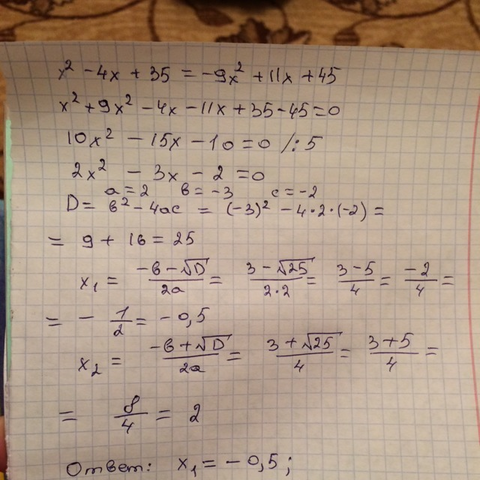 x² - 4x + 35 = -9x² + 11x + 45
x² + 9x² - 4x - 11x + 35 - 45 = 0
10x² - 15x - 10 = 0 /: 5
2x² - 3x - 2 = 0
a = 2 в = -3 c = -2
D = в² - 4ac = (-3)² - 4·2·(-2) =
= 9 + 16 = 25
x₁ = (-в - √D)/2a = (3 - √25)/2·2 = (3 - 5)/4 = -2/4 =
= - 1/2 = -0,5
x₂ = (-в + √D)/2a = (3 + √25)/4 = (3 + 5)/4 =
= 8/4 = 2
Ответ: x₁ = -0,5;